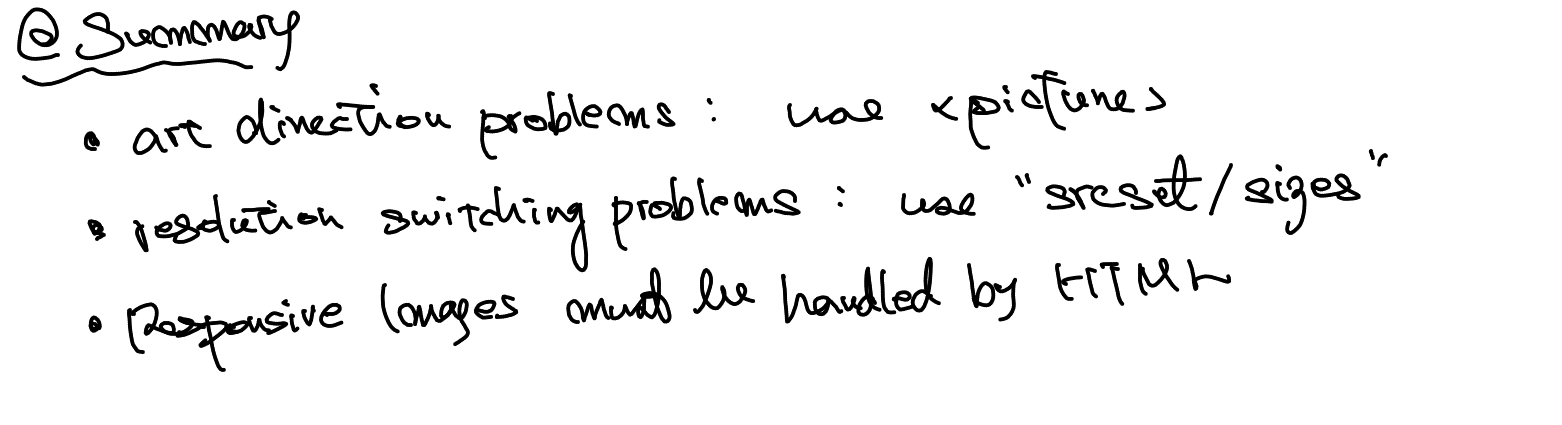 @ Summary
• art direction problems : use <picture>
• resolution switching problems : use "srcset/sizes"
• Responsive Images must be handled by HTML